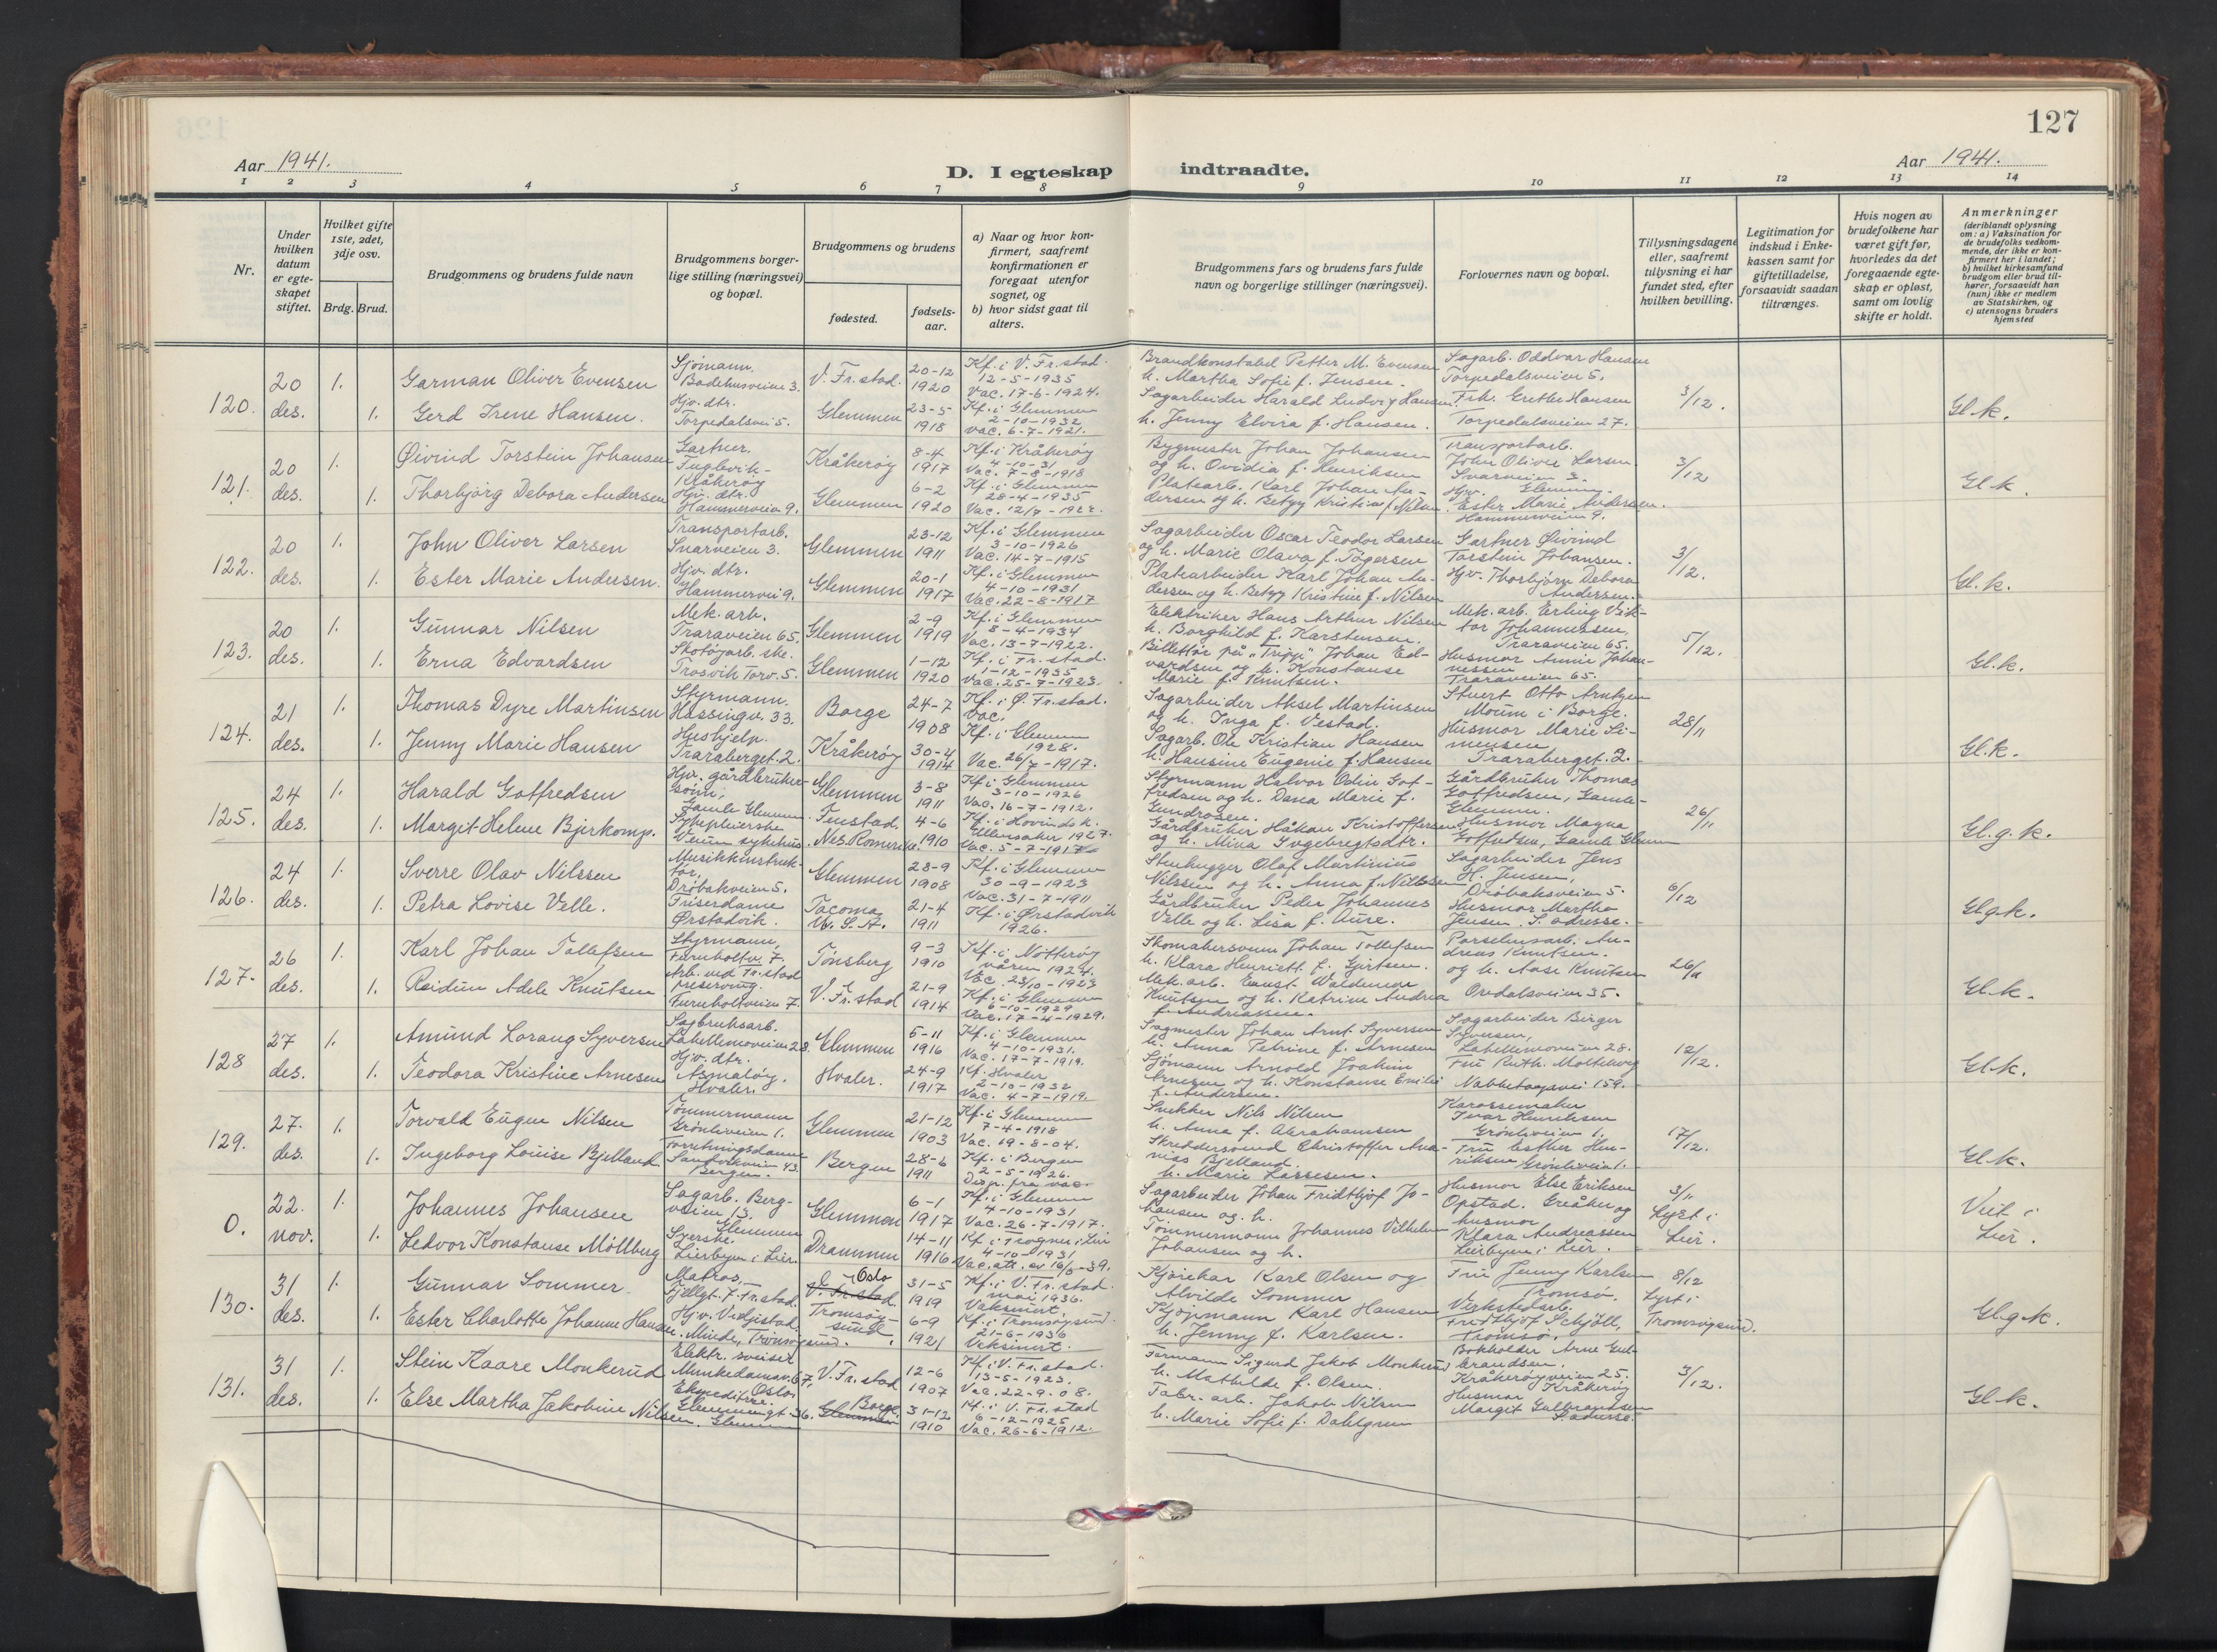 127
Aar 1941.
D. I egteskap indtraadte.
Aar 1941.
1 2 3 4 5 6 7 8 9 10 11 12 13 14
Nr.
Under hvilken datum er egteskapet stiftet.
Hvilket gifte 1ste, 2det, 3dje osv.
Brdg. Brud.
Brudgommens og brudens fulde navn
Brudgommens borgerlige stilling (næringsvei) og bopæl.
Brudgommens og brudens
fødested.
fødselsaar.
a) Naar og hvor konfirmert, saafremt konfirmationen er foregaat utenfor sognet, og
b) hvor sidst gaat til alters.
Brudgommens fars og brudens fars fulde navn og borgerlige stillinger (næringsvei).
Forlovernes navn og bopæl.
Tillysningsdagene eller, saafremt tillysning ei har fundet sted, efter hvilken bevilling.
Legitimation for indskud i Enkekassen samt for giftetilladelse, forsaavidt saadan tiltrænges.
Hvis nogen av brudefolkene har været gift før, hvorledes da det foregaaende egteskap er opløst, samt om lovlig skifte er holdt.
Anmerkninger (deriblandt oplysning om: a) Vaksination for de brudefolks vedkommende, der ikke er konfirmert her i landet; b) hvilket kirkesamfund brudgom eller brud tilhører, forsaavidt han (hun) ikke er medlem av Statskirken, og c) utensogns bruders hjemsted
120. 20 des. 1. 1.
Garman Oliver Evensen
Sjømann. Badehusveien 3.
V. Fr.stad. 20-12 1920
Kf. i V. Fr.stad. 12-5-1935 Vac. 17-6-1924.
Brandkonstabel Petter M. Evensen h. Martha Sofie f. Jensen.
Sagarb. Oddvar Hansen Torpedalsveien 5.
Gerd Irene Hansen.
Hjv. dtr. Torpedalsvei 5.
Glemmen 23-5 1918
Kf. i Glemmen 2-10-1932 Vac. 6-7-1921.
Sagarbeider Harald Ludvig Hansen h. Jenny Elvira f. Hansen.
Frk. Grethe Hansen Torpedalsveien 27.
3/12.
Gl.k.
121. 20 des. 1. 1.
Øivind Torstein Johansen
Gartner. Fuglevik - Kråkerøy
Kråkerøy 8-4 1917
Kf. i Kråkerøy 4-10-31 Vac. 7-8-1918
Bygmester Johan Johansen og h. Ovidia f. Henriksen
Transportarb. John Oliver Larsen Snarveien 3. Glemmen.
Thorbjørg Debora Andersen
Hjv. dtr. Hammerveien 9.
Glemmen 6-2 1920
Kf. i Glemmen 28-4-1935 Vac. 12/7-1922.
Platearb. Karl Johan Andersen og h. Betzy Kristine f. Nilsen
Hjv. Ester Marie Andersen. Hammerveien 9.
3/12
Gl.k.
122. 20 des. 1. 1.
John Oliver Larsen
Transportarb. Snarveien 3.
Glemmen 23-12 1911
Kf. i Glemmen 3-10-1926 Vac. 14-7-1915
Sagarbeider Oscar Teodor Larsen og h. Marie Olava f. Tøgersen
Gartner Øivind Torstein Johansen.
Ester Marie Andersen.
Hjv. dtr. Hammervei 9.
Glemmen 20-1 1917
Kf. i Glemmen 4-10-1931 Vac. 22-8-1917
Platearbeider Karl Johan Andersen og h. Betzy Kristine f. Nilsen
Hjv. Thorbjørg Debora Andersen.
3/12.
Gl.k.
123. 20 des. 1. 1.
Gunnar Nilsen
Mek. arb. Traraveien 65.
Glemmen 2-9 1919
Kf. i Glemmen 8-4-1934 Vac. 13-7-1922.
Elektriker Hans Arthur Nilsen h. Borghild f. Karstensen.
Mek. arb. Erling Viktor Johannessen, Traraveien 65.
Erna Edvardsen
Skotøjarb.ske. Trosvik Torv. 5.
Glemmen 1-12 1920
Kf. i Fr.stad. 1-12-1935 Vac. 25-7-1923.
Billettør på "Trygg" Johan Edvardsen og h. Konstanse Marie f. Knutsen.
Husmor Annie Johannessen Traraveien 65.
5/12.
Gl.k.
124. 21 des. 1. 1.
Thomas Dyre Martinsen
Styrmann. Hassingv. 33.
Borge 24-7 1908
Kf. i Ø. Fr.stad. Vac.
Sagarbeider Aksel Martinsen og h. Inga f. Vestad.
Stuert Otto Arntzen Moum i Borge.
Jenny Marie Hansen
Hushjelp. Traraberget. 2.
Kråkerøy 30-4 1914
Kf. i Glemmen 1928. Vac. 26/7-1917.
Sagarb. Ole Kristian Hansen h. Hansine Eugenie f. Hansen
Husmor Marie Simensen Traraberget. 2.
28/11
Gl.k.
125. 24 des. 1. 1.
Harald Gotfredsen
Hjv. gårdbrukersønn, Gamle Glemmen
Glemmen 3-8 1911
Kf. i Glemmen 3-10-1926 Vac. 16-7-1912.
Styrmann Halvor Odin Gotfredsen og h. Dana Marie f. Gundrosen.
Gårdbruker Thomas Gotfredsen, Gamle Glemmen.
Margit Helene Bjerkomp.
Sykepleierske Veum sykehus.
Fenstad. Nes Romerike. 4-6 1910
Kf. i Hovind sk. Ullensaker 1927. Vac. 5-7-1917
Gårdbruker Håkan Kristoffersen og h. Mina Ingebregtsdtr.
Husmor Magna Gotfredsen, Gamle Glemmen
26/11
Gl.g.k.
126. 24 des. 1. 1.
Sverre Olav Nilssen
Musikkinstruktør, Drøbakveien 5.
Glemmen 28-9 1908
Kf. i Glemmen 30-9-1923 Vac. 31-7-1911
Stenhugger Olaf Martinius Nilssen og h. Anna f. Nilssen
Sagarbeider Jens H. Jensen, Drøbaksveien 5.
Petra Lovise Velle.
Friserdame Ørstadvik.
Tacoma U.S.A. 21-4 1911
Kf. i Ørstadvik 1926.
Gårdbruker Peder Johannes Velle og h. Lisa f. Aure.
Husmor Martha Jensen. S. adresse.
6/12
Gl.g.k.
127. 26 des. 1. 1.
Karl Johan Tollefsen
Styrmann, Furuholtv. 7.
Tønsberg 9-3 1910
Kf. i Nøtterøy våren 1924. Vac. 23/10-1923
Skomakersvenn Johan Tollefsen h. Klara Henriett. f. Gjertsen.
Porselensarb. Andreas Knutsen.
Reidun Adele Knutsen
Arb. ved Fr.stad preserving. Furuholtveien 7
V. Fr.stad 21-9 1914
Kf. i Glemmen 6-10-1929 Vac. 17-4-1929.
Mek. arb. Ernst Waldemar Knutsen og h. Katrine Andrea f. Andreassen.
og h. Aase Knutsen Oredalsveien 35.
26/11
Gl.k.
128 27 des. 1. 1.
Amund Lorang Syversen
Sagbruksarb. Labellemoveien 28.
Glemmen 5-11 1916
Kf. i Glemmen 4-10-1931. Vac. 17-7-1919.
Sagmester Johan Arnt Syversen h. Anna Petrine f. Arnesen
Sagarbeider Birger Syversen, Labellemoveien 28.
Teodora Kristine Arnesen
Hjv. dtr. Asmaløy. Hvaler.
Hvaler. 24-9 1917
Kf. Hvaler 2-10-1932 Vac. 4-7-1919.
Sjømann Arnold Joakim Arnesen og h. Konstanse Emilie f. Andersen.
Fru Ruth Moltekorg Nabbetorpvei 159.
12/12.
Gl.k.
129. 27. des. 1. 1.
Torvald Eugen Nilsen
Tømmermann Grønliveien 1.
Glemmen 21-12 1903
Kf. i Glemmen 7-4-1918 Vac. 19-8-04.
Snekker Nils Nilsen h. Anna f. Abrahamsen
Karossemaker Ivar Henriksen Grønliveien 1.
Ingeborg Louise Bjelland
Forretningsdame Sandviksveien 43 Bergen.
Bergen 28-6 1911
Kf. i Bergen 2-5-1926. Disp. fra vac.
Skreddersvend Christoffer Ananias Bjelland. h. Marie Lassesen.
Fru Esther Henriksen Grønliveien 1.
17/12.
Gl.k.
0. 22. nov. 1. 1.
Johannes Johansen
Sagarb. Bergveien 13. Glemmen
Glemmen 6-1 1917
Kf. i Glemmen 4-10-1931 Vac. 26-7-1917.
Sagarbeider Johan Fridthjof Johansen og h.
Husmor Else Eriksen Opstad. Greåker og
Ledvor Konstanse Møllberg
Syerske. Lierbyen i Lier.
Drammen 14-11 1916
Kf. i Frogner i Lier 4-10-1931 Vac. att. av 16/5-39.
Tømmermann Johannes Vilhelm Johansen og h.
husmor Klara Andreassen Lierbyen i Lier.
3/11 Lyst i Lier.
Viet i Lier.
130. 31 des. 1. 1.
Gunnar Sommer
Matros, Fjellgt. 7. Fr.stad.
V. Fr.stad. Oslo 31-5 1919
Kf. i V. Fr.stad. mai 1936. Vaksinert.
Kjørekar Karl Olsen og Alvilde Sommer
Fru Jenny Karlsen Tromsø.
Ester Charlotte Johanne Hansen.
Tromsøysund. 6-9 1921
Kf. i Tromsøysund. 21-6-1936 Veksinert.
Kjøpmann Karl Hansen h. Jenny f. Karlsen.
Verkstedarb. Fridthjof Schjøll, Tromsø.
8/12 Lyst i Tromsøysund.
Gl.g.k.
131. 31 des. 1. 1.
Stein Kaare Monkerud
Elektr. sveiser Munkedamsv. 67, Oslo.
V. Fr.stad 12-6 1907
Kf. i V. Fr.stad. 13-5-1923. Vac. 22-9-08.
Formann Sigurd Jakob Monkerud h. Mathilde f. Olsen.
Bokholder Arne Gulbrandsen. Kråkerøyveien 25. Kråkerøy
Else Martha Jakobine Nilsen.
Ekspeditrise. Glemmengt. 36. Glemmen
Glemmen Borge. 31-12 1910
Kf. i V. Fr.stad 6-12-1925 Vac. 26-6-1912.
Fabr. arb. Jakob Nilsen h. Marie Sofie f. Dahlgren
Husmor Margit Gulbrandsen S. adresse.
3/12.
Gl.k.